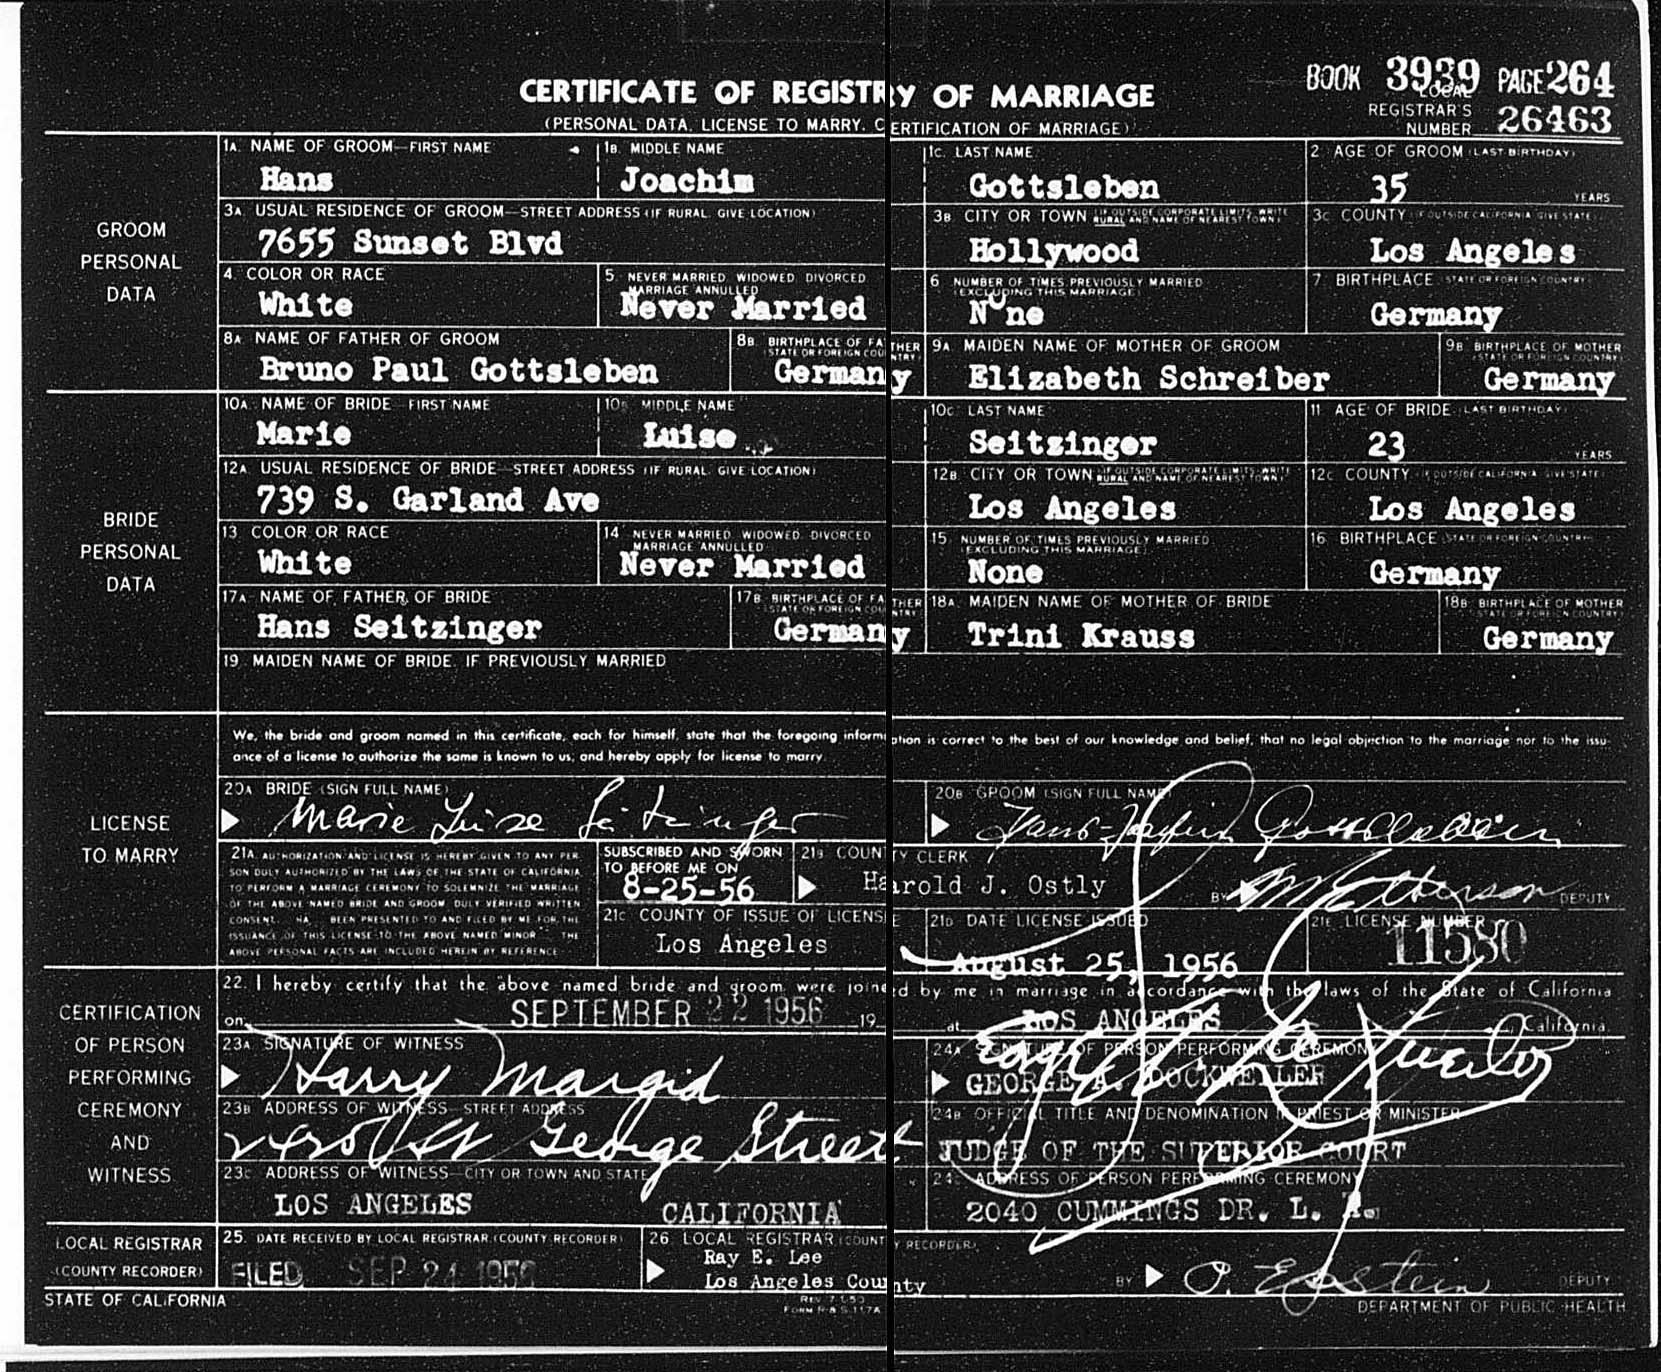 BOOK 3939 PAGE 264
CERTIFICATE OF REGISTRY OF MARRIAGE
(PERSONAL DATA, LICENSE TO MARRY, CERTIFICATION OF MARRIAGE)
LOCAL REGISTRAR'S NUMBER 26463
GROOM PERSONAL DATA
1A. NAME OF GROOM—FIRST NAME 1B. MIDDLE NAME 1C. LAST NAME 2 AGE OF GROOM (LAST BIRTHDAY)
Hans Joachim Gottsleben 35 YEARS
3A USUAL RESIDENCE OF GROOM—STREET ADDRESS (IF RURAL, GIVE LOCATION) 3B CITY OR TOWN (IF OUTSIDE CORPORATE LIMITS, WRITE RURAL AND NAME OF NEAREST TOWN) 3C COUNTY (IF OUTSIDE CALIFORNIA GIVE STATE)
7655 Sunset Blvd Hollywood Los Angeles
4. COLOR OR RACE 5. NEVER MARRIED, WIDOWED, DIVORCED, MARRIAGE ANNULLED 6 NUMBER OF TIMES PREVIOUSLY MARRIED (EXCLUDING THIS MARRIAGE) 7 BIRTHPLACE (STATE OR FOREIGN COUNTRY)
White Never Married None Germany
8A NAME OF FATHER OF GROOM 8B. BIRTHPLACE OF FATHER (STATE OR FOREIGN COUNTRY) 9A MAIDEN NAME OF MOTHER OF GROOM 9B BIRTHPLACE OF MOTHER (STATE OR FOREIGN COUNTRY)
Bruno Paul Gottsleben Germany Elizabeth Schreiber Germany
BRIDE PERSONAL DATA
10A. NAME OF BRIDE—FIRST NAME 10B MIDDLE NAME 10C LAST NAME 11 AGE OF BRIDE (LAST BIRTHDAY)
Marie Luise Seitzinger 23 YEARS
12A USUAL RESIDENCE OF BRIDE—STREET ADDRESS (IF RURAL, GIVE LOCATION) 12B CITY OR TOWN (IF OUTSIDE CORPORATE LIMITS, WRITE RURAL AND NAME OF NEAREST TOWN) 12C COUNTY (IF OUTSIDE CALIFORNIA GIVE STATE)
739 S. Garland Ave Los Angeles Los Angeles
13 COLOR OR RACE 14 NEVER MARRIED, WIDOWED, DIVORCED, MARRIAGE ANNULLED 15. NUMBER OF TIMES PREVIOUSLY MARRIED (EXCLUDING THIS MARRIAGE) 16 BIRTHPLACE (STATE OR FOREIGN COUNTRY)
White Never Married None Germany
17A NAME OF FATHER OF BRIDE 17B BIRTHPLACE OF FATHER (STATE OR FOREIGN COUNTRY) 18A MAIDEN NAME OF MOTHER OF BRIDE 18B BIRTHPLACE OF MOTHER (STATE OR FOREIGN COUNTRY)
Hans Seitzinger Germany Trini Krauss Germany
19 MAIDEN NAME OF BRIDE, IF PREVIOUSLY MARRIED
LICENSE TO MARRY
We, the bride and groom named in this certificate, each for himself, state that the foregoing information is correct to the best of our knowledge and belief, that no legal objection to the marriage nor to the issu-
ance of a license to authorize the same is known to us, and hereby apply for license to marry.
20A BRIDE (SIGN FULL NAME) 20B GROOM (SIGN FULL NAME)
Marie Luise Seitzinger Hans-Joachim Gottsleben
21A AUTHORIZATION AND LICENSE IS HEREBY GIVEN TO ANY PER
SON DULY AUTHORIZED BY THE LAWS OF THE STATE OF CALIFORNIA
TO PERFORM A MARRIAGE CEREMONY TO SOLEMNIZE THE MARRIAGE
OF THE ABOVE NAMED BRIDE AND GROOM. DULY VERIFIED WRITTEN
CONSENT, HA BEEN PRESENTED TO AND FILED BY ME FOR THE
ISSUANCE OF THIS LICENSE TO THE ABOVE NAMED MINOR THE
ABOVE PERSONAL FACTS ARE INCLUDED HEREIN BY REFERENCE
SUBSCRIBED AND SWORN TO BEFORE ME ON
8-25-56
21B COUNTY CLERK
Harold J. Ostly BY DEPUTY
21C COUNTY OF ISSUE OF LICENSE 21D DATE LICENSE ISSUED 21E LICENSE NUMBER
Los Angeles August 25, 1956 11580
CERTIFICATION OF PERSON PERFORMING CEREMONY AND WITNESS
22. I hereby certify that the above named bride and groom were joined by me in marriage in accordance with the laws of the State of California
on SEPTEMBER 22 1956 19 at LOS ANGELES California
23A SIGNATURE OF WITNESS 24A SIGNATURE OF PERSON PERFORMING CEREMONY
Harry Margid GEORGE A. DOCKWEILER
23B ADDRESS OF WITNESS—STREET ADDRESS 24B OFFICIAL TITLE AND DENOMINATION IF PRIEST OR MINISTER
George Street JUDGE OF THE SUPERIOR COURT
23C ADDRESS OF WITNESS—CITY OR TOWN AND STATE 24C ADDRESS OF PERSON PERFORMING CEREMONY
LOS ANGELES CALIFORNIA 2040 CUMMINGS DR. L. A.
LOCAL REGISTRAR (COUNTY RECORDER)
25. DATE RECEIVED BY LOCAL REGISTRAR (COUNTY RECORDER) 26. LOCAL REGISTRAR (COUNTY RECORDER)
FILED SEP 24 1956 Ray E. Lee
Los Angeles County BY P. Epstein DEPUTY
STATE OF CALIFORNIA DEPARTMENT OF PUBLIC HEALTH